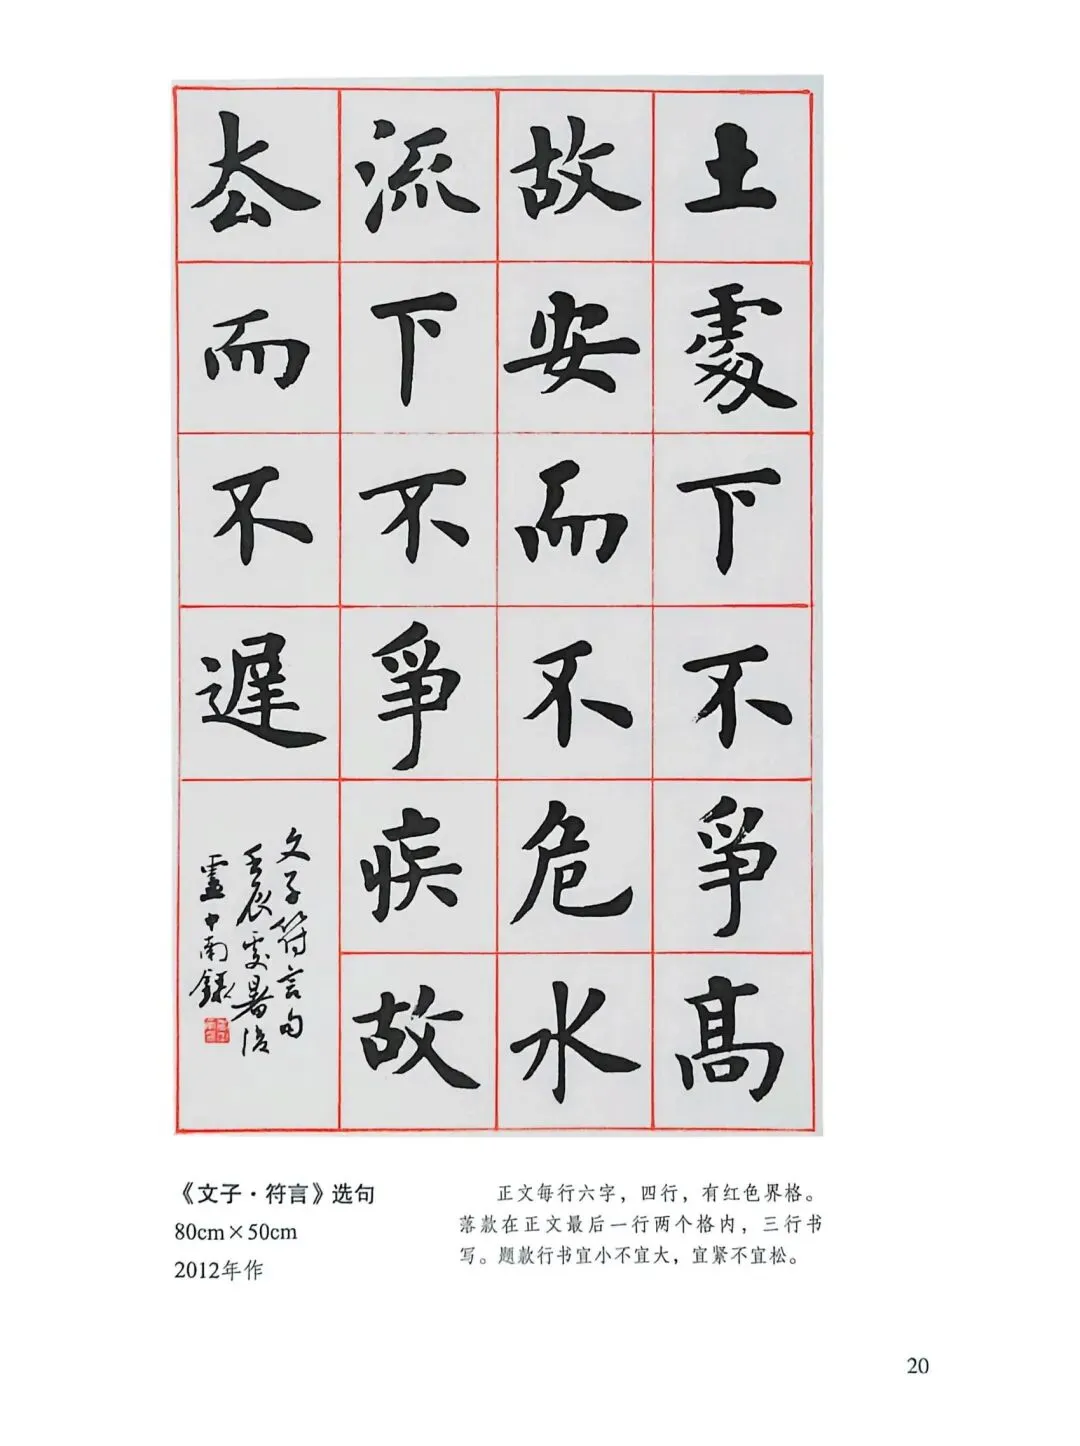 土處下不爭高
故安而不危水
流下不爭疾故
去而不遲
文子符言句
壬辰處暑後
盧中南録
《文子·符言》选句
80cm×50cm
2012年作
正文每行六字，四行，有红色界格。
落款在正文最后一行两个格内，三行书
写。题款行书宜小不宜大，宜紧不宜松。
20